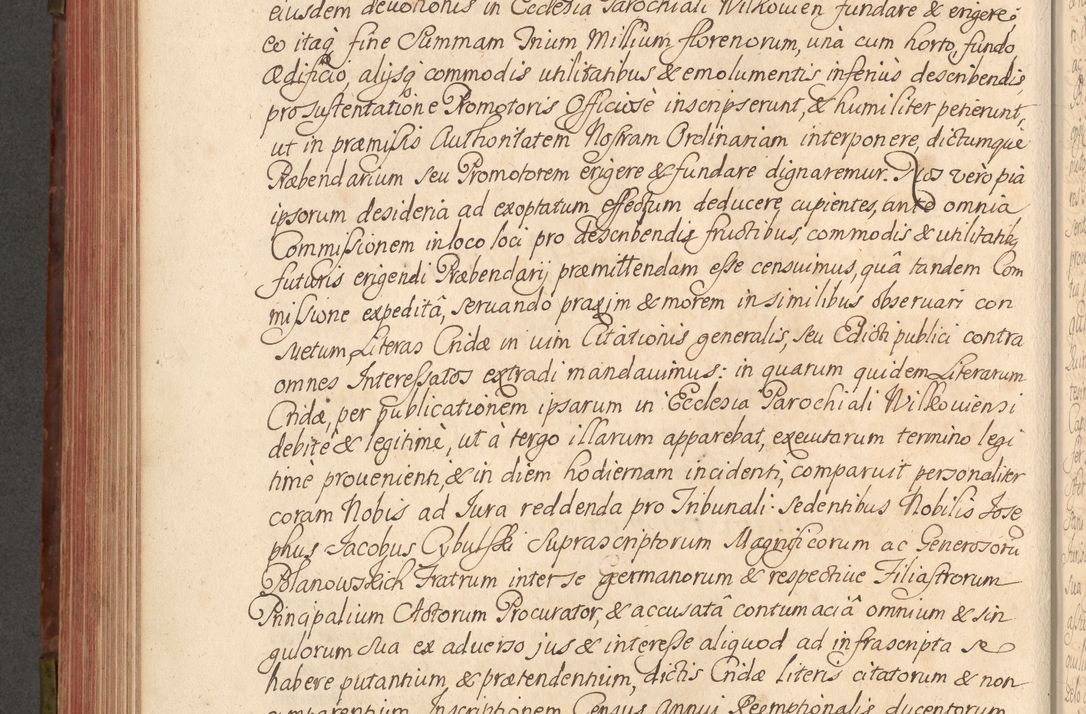 eiusdem deuotionis in Ecclesia Parochiali Wilkowien fundare & erigere;
eo itaq fine Summam Trium Millium florenorum, unà cum horto, fundo
Ædificio, alijsq commodis utilitatibus & emolumentis inferius describendis,
pro sustentatione Promotoris Officiosè inscripserunt, & humiliter petierunt,
ut in præmissis Authoritatem Nostram Ordinariam interponere, dictumquè
Præbendarium seu Promotorem erigere & fundare dignaremur. Nos verò pia
ipsorum desideria ad exoptatum effectum deducere cupientes, ante omnia
Commissionem in loco loci pro describendis fructibus, commodis & utilitatib,
futuris erigendi Præbendarij præmittendam esse censuimus, quâ tandem Com
missione expeditâ, seruando praxim & morem in similibus obseruari con
suetum, Literas Cridæ in uim Citationis generalis, seu Edicti publici contra
omnes Interessatos extradi mandauimus: in quarum quidem Literarum
Cridæ, per publicationem ipsarum in Ecclesia Parochiali Wilkowiensi
debitè & legitimè, ut à tergo illarum apparebat, executarum termino legi
timè prouenienti, & in diem hodiernam incidenti, comparuit personaliter
coram Nobis ad Jura reddenda pro Tribunali sedentibus Nobilis Jose
phus Jacobus Cybulski Suprascriptorum Magnificorum ac Generosorũ
Polanowskich Fratrum inter se germanorum & respectiue Filiastrorum
Principalium Actorum Procurator, & accusatâ contumaciâ omnium & sin
gulorum sua ex aduerso jus & interesse aliquod ad infrascripta se
habere putantium, & prætendentium, dictis Cridæ literis citatorum & non
comparentium Inscriptionem Census annui Reemptionalis ducentorum